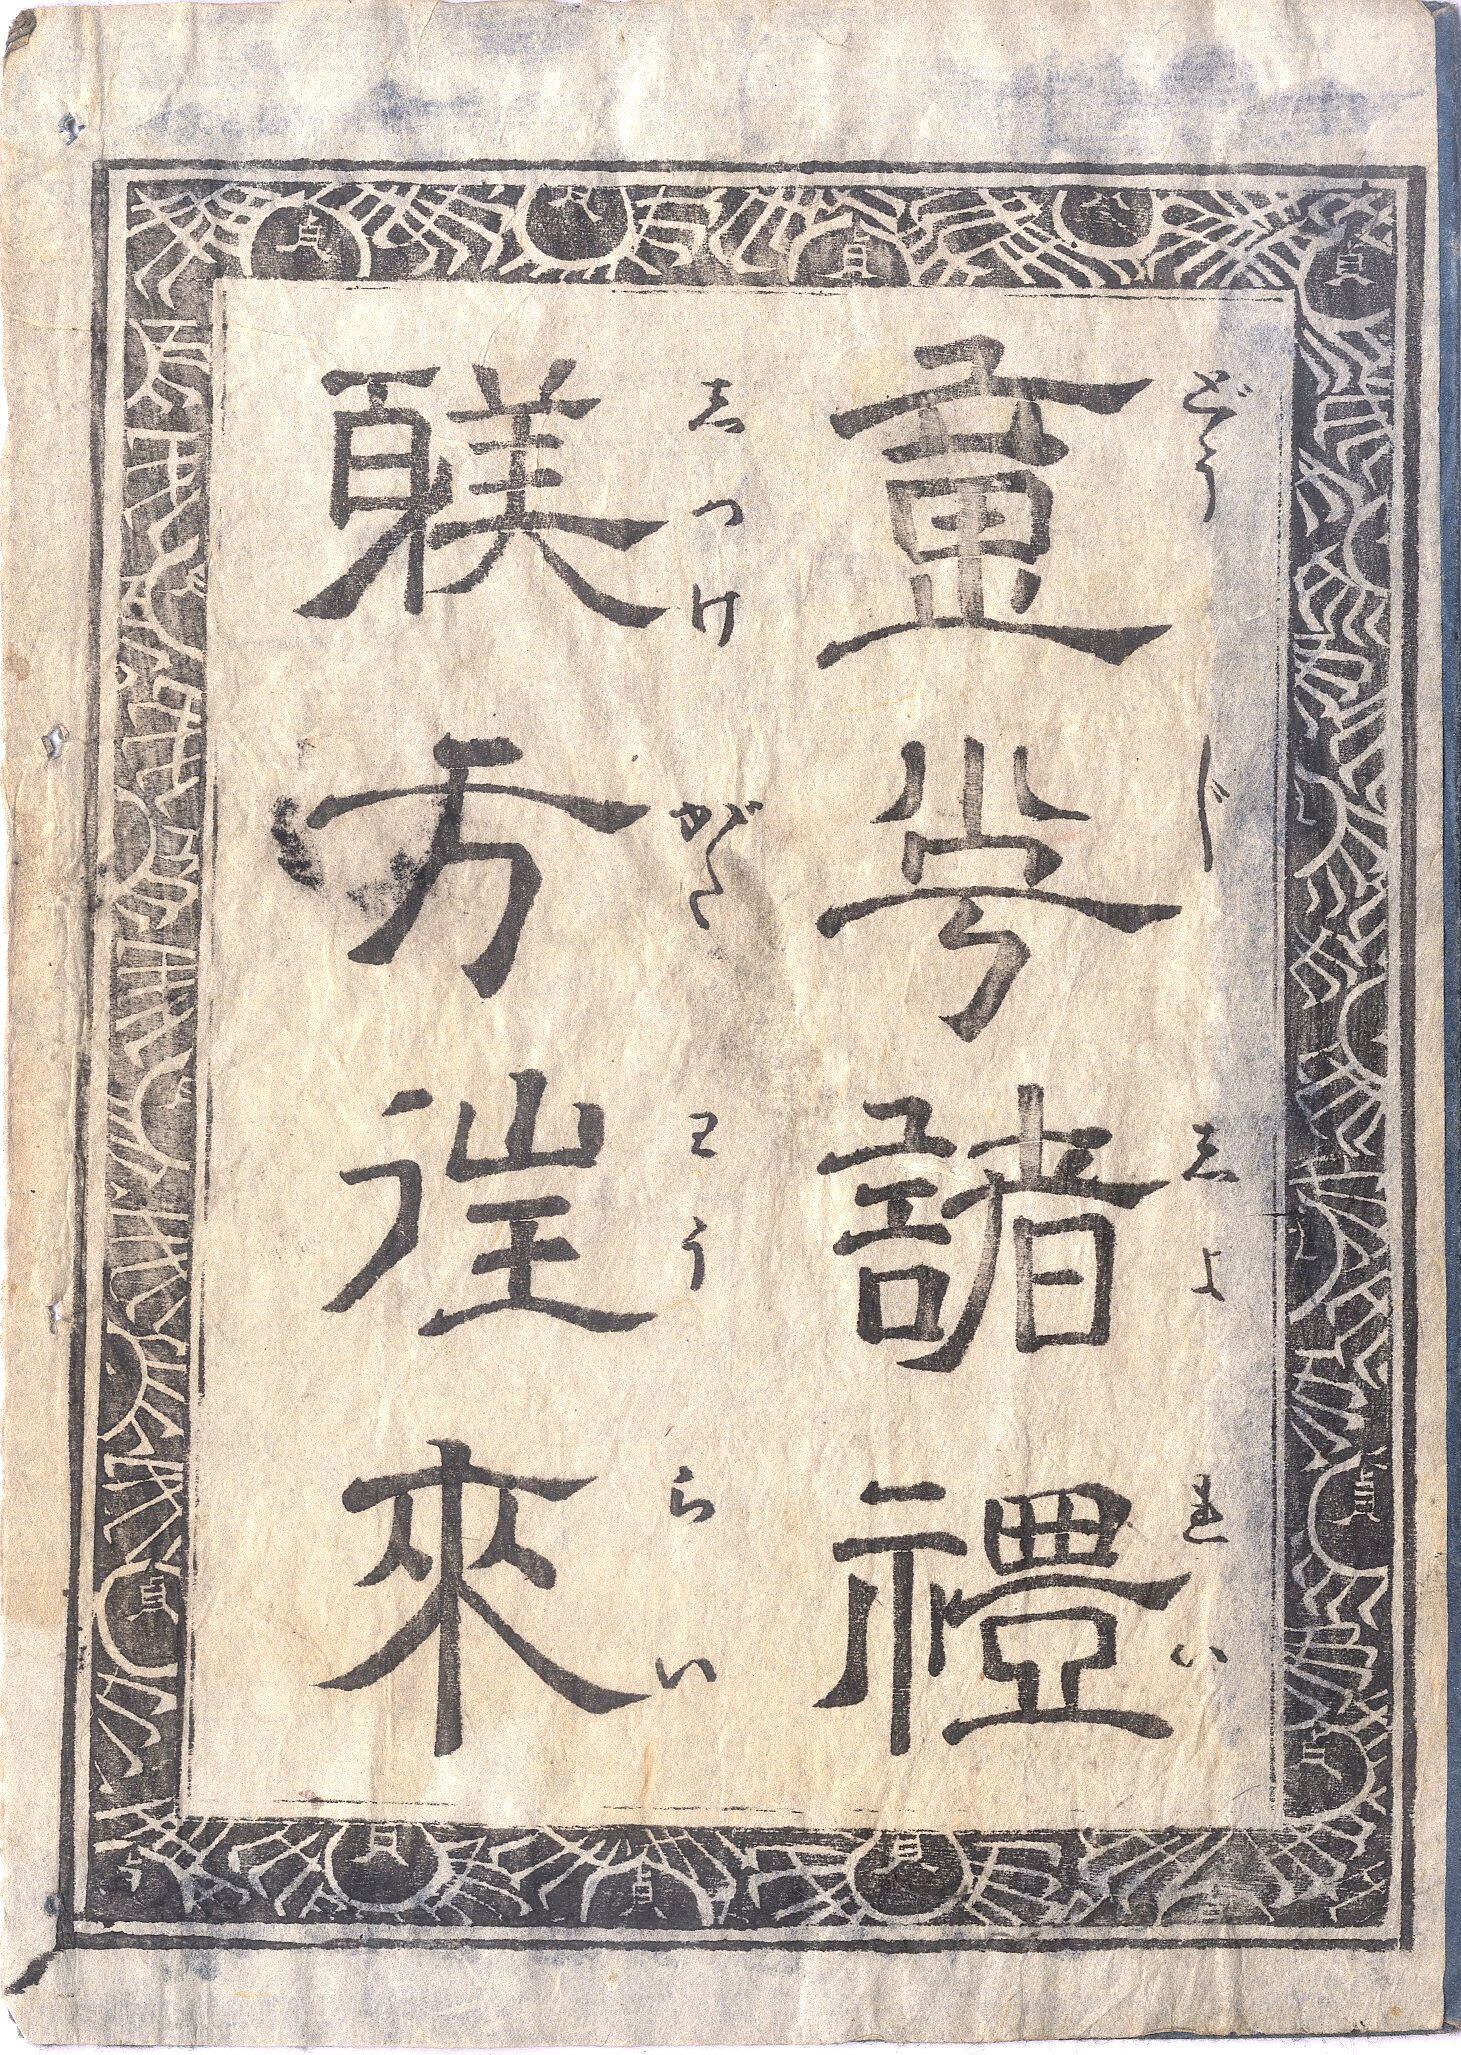 どうじしよれい
童子諸禮
しつけがたわうらい
躾方往來